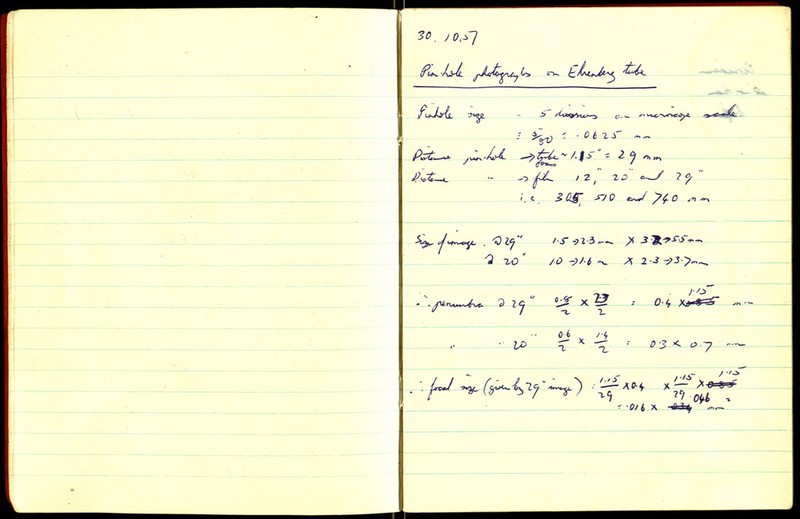 30.10.57
Pinhole photographs on Ehrenberg tube
Pinhole size - 5 divisions on microscope scale
= 5/80 = .0625 mm
Distance pin-hole → tube focus ~ 1.15" = 29 mm
Distance " → film 12", 20" and 29"
i.e. 305, 510 and 740 mm
Size of image @ 29" 1.5 → 2.3 mm × 3.2 → 5.5 mm
@ 20" 1.0 → 1.6 m × 2.3 → 3.7 mm
∴ penumbra @ 29" 0.8/2 × 2.3/2 = 0.4 × 1.15 mm
" " 20" 0.6/2 × 1.4/2 = 0.3 × 0.7 mm
∴ focal size (given by 29" image) = 1.15/29 × 0.4 × 1.15/29 × 1.15
= .016 × .046 mm